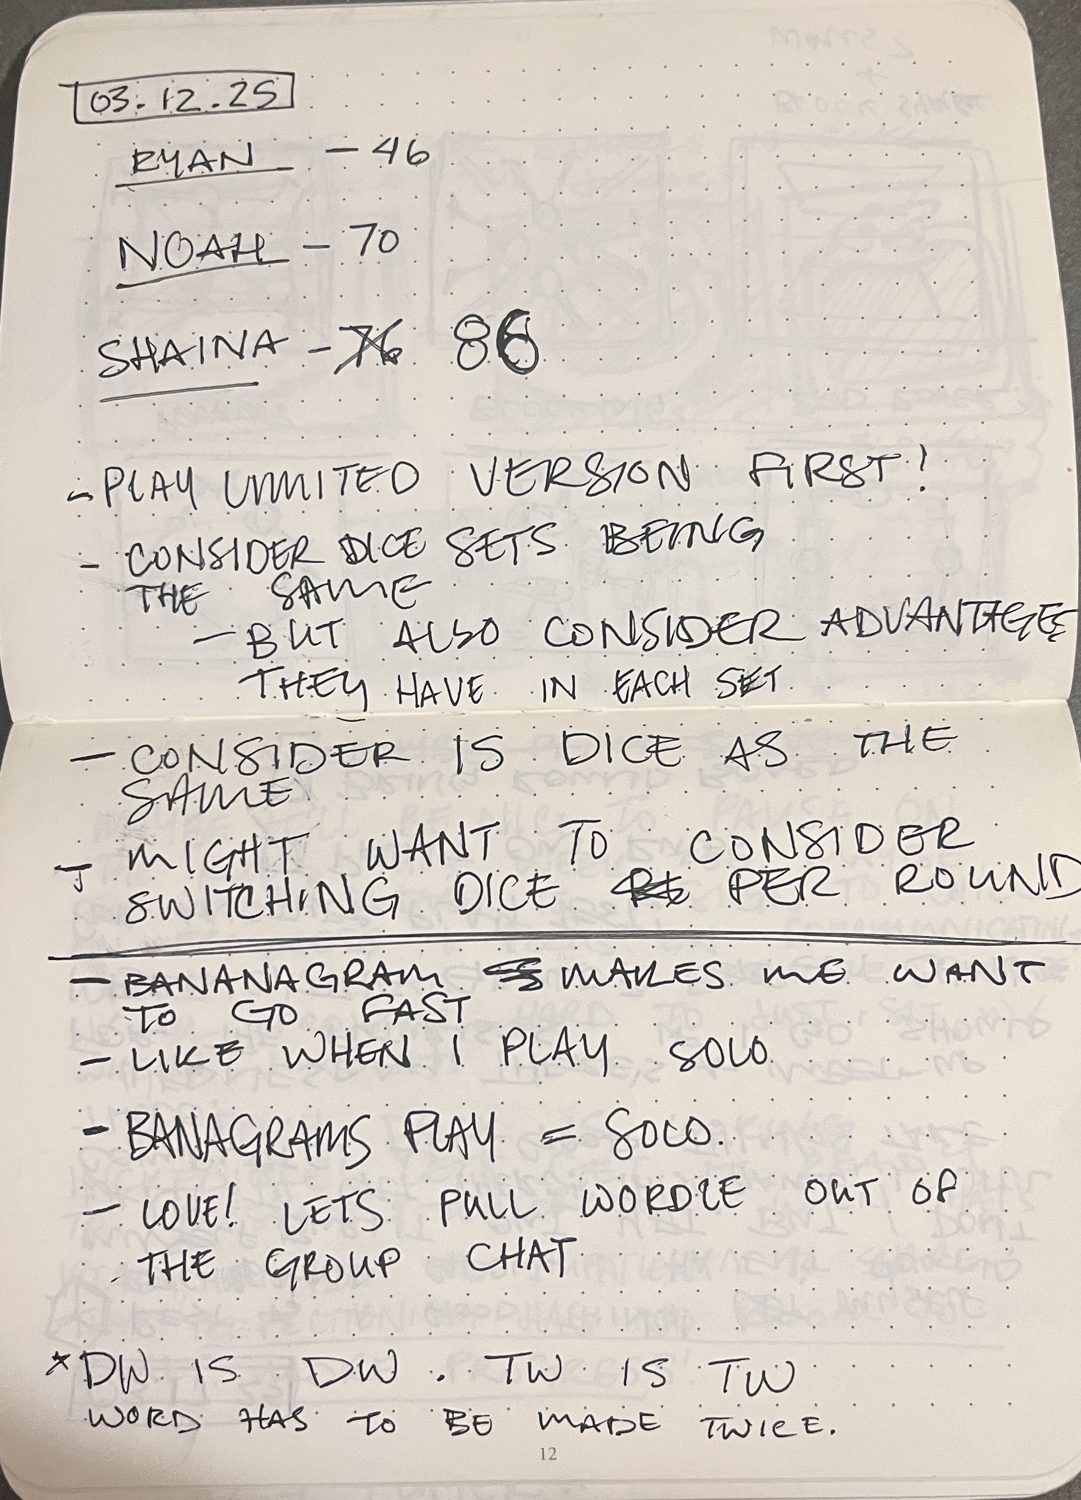 03.12.25
RYAN - 46
NOAH - 70
SHAINA - 76 86
- PLAY LIMITED VERSION FIRST!
- CONSIDER DICE SETS BEING
THE SAME
- BUT ALSO CONSIDER ADVANTAGES
THEY HAVE IN EACH SET
- CONSIDER IS DICE AS THE
SAME
- MIGHT WANT TO CONSIDER
SWITCHING DICE PER ROUND
- BANANAGRAM MAKES ME WANT
TO GO FAST
- LIKE WHEN I PLAY SOLO
- BANAGRAMS PLAY = SOLO.
- LOVE! LETS PULL WORDLE OUT OF
THE GROUP CHAT
* DW IS DW. TW IS TW
WORD HAS TO BE MADE TWICE.
12